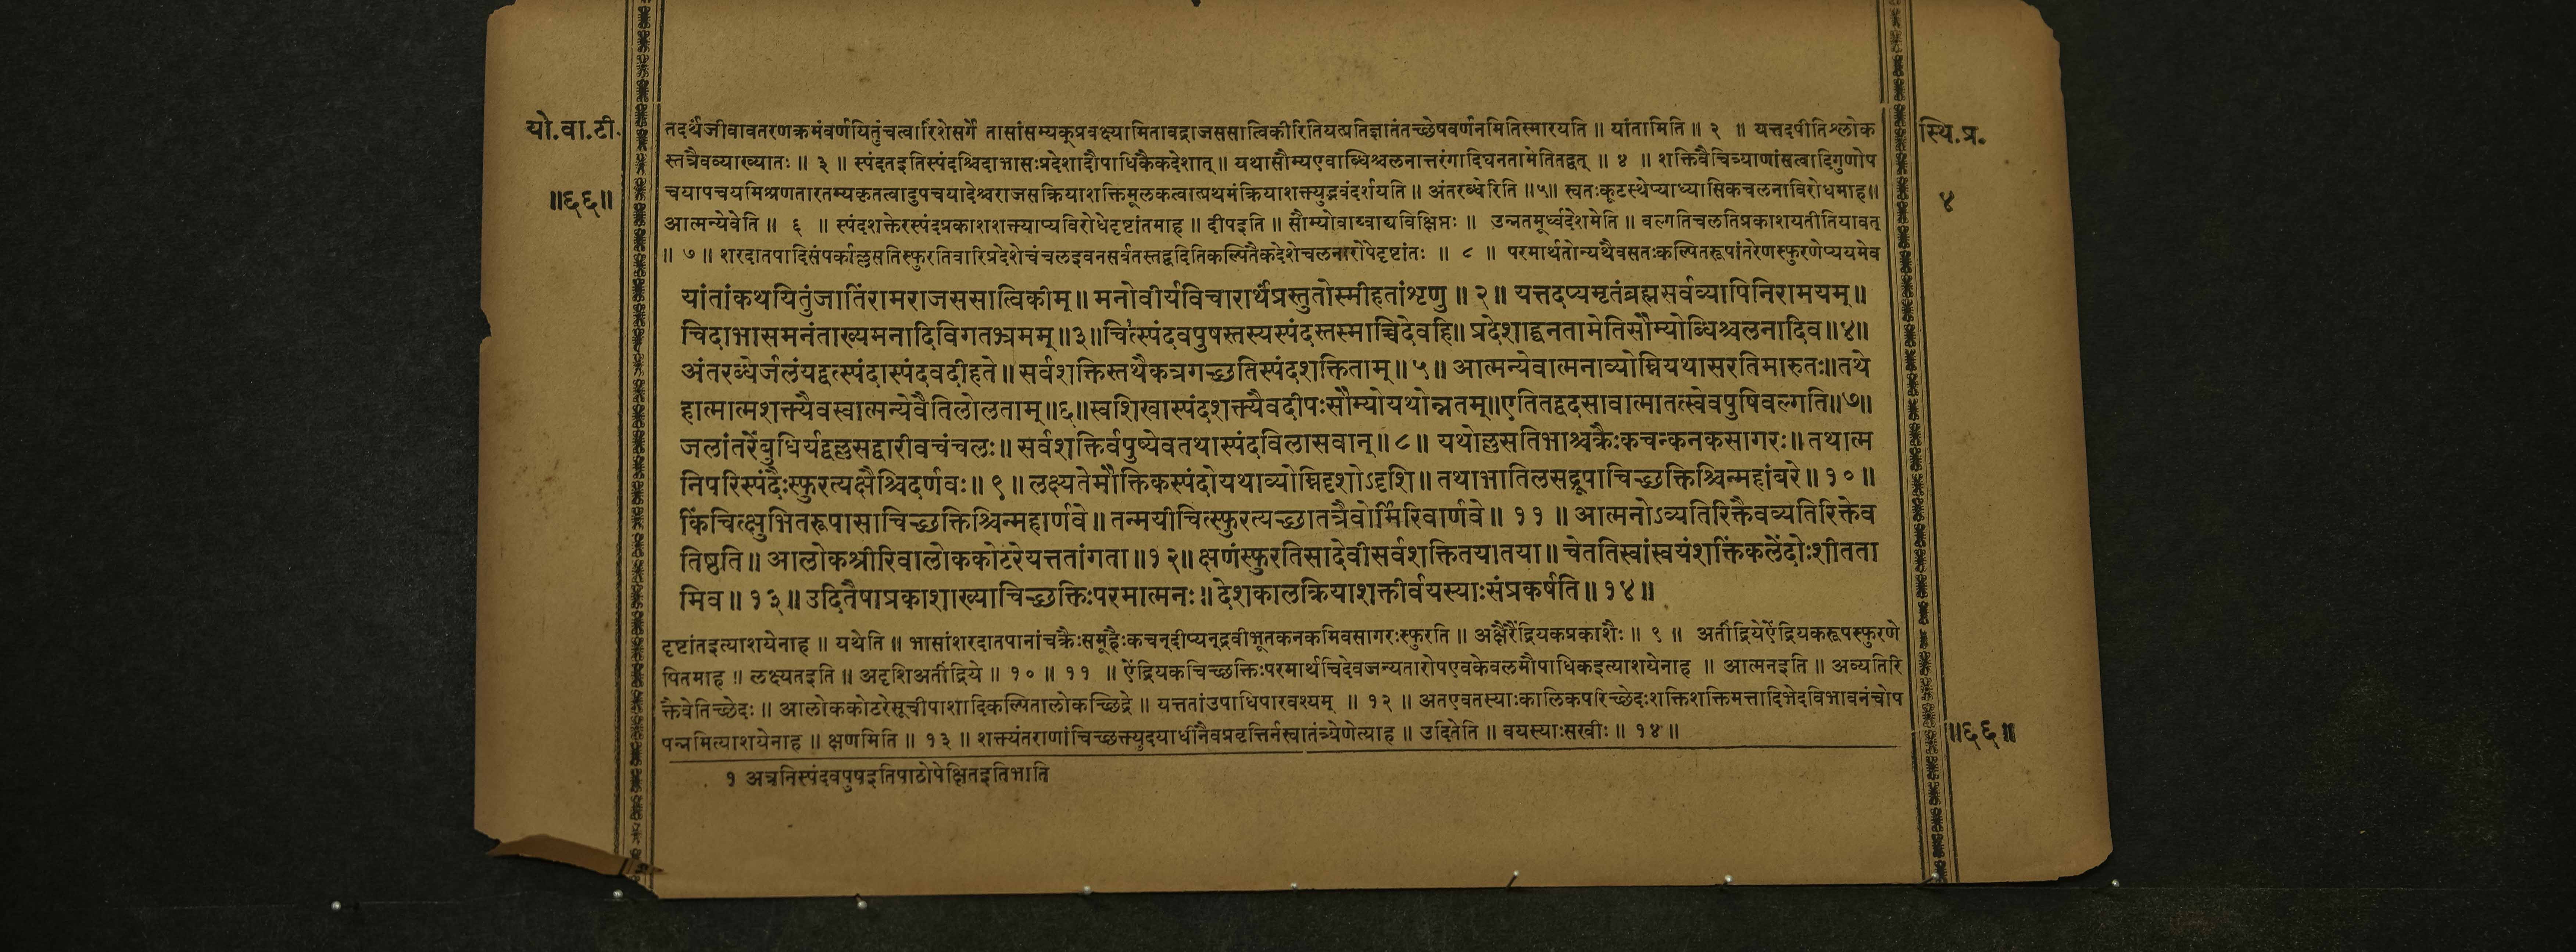 यो.वा.टी.
॥६६॥
तदर्थंजीवावतरणक्रमंवर्णयितुंचत्वारिंशेसर्गे तासांसम्यक्प्रवक्ष्यामितावद्राजससात्विकीरितियत्प्रतिज्ञातंतच्छेषवर्णनमितिस्मारयति ॥ यांतामिति ॥ २ ॥ यत्तदपीतिश्लोक
स्तत्रैवव्याख्यातः ॥ ३ ॥ स्पंदतइतिस्पंदश्चिदाभासःप्रदेशादौपाधिकैकदेशात् ॥ यथासौम्यएवाब्धिश्चलनात्तरंगादिघनतामेतितद्वत् ॥ ४ ॥ शक्तिवैचित्र्याणांसत्वादिगुणोप
चयापचयमिश्रणतारतम्यकृतत्वादुपचयादेश्चराजसक्रियाशक्तिमूलकत्वात्प्रथमंक्रियाशक्त्युद्भवंदर्शयति ॥ अंतरब्धेरिति ॥५॥ स्वतःकूटस्थेप्याध्यासिकचलनाविरोधमाह॥
आत्मन्येवेति ॥ ६ ॥ स्पंदशक्तेरस्पंदप्रकाशशक्त्याप्यविरोधेदृष्टांतमाह ॥ दीपइति ॥ सौम्योवाय्वाद्यविक्षिप्तः ॥ उन्नतमूर्ध्वदेशमेति ॥ वल्गतिचलतिप्रकाशयतीतियावत्
॥ ७ ॥ शरदातपादिसंपर्काल्लसतिस्फुरतिवारिप्रदेशेचंचलइवनसर्वतस्तद्वदितिकल्पितैकदेशेचलनारोपेदृष्टांतः ॥ ८ ॥ परमार्थतोन्यथैवसतःकल्पितरूपांतरेणस्फुरणेप्ययमेव
यांतांकथयितुंजातिंरामराजससात्विकीम्॥ मनोवीर्यविचारार्थंप्रस्तुतोस्मीहतांशृणु ॥ २॥ यत्तदप्यमृतंब्रह्मसर्वव्यापिनिरामयम्॥
चिदाभासमनंताख्यमनादिविगतभ्रमम्॥३॥चित्स्पंदवपुषस्तस्यस्पंदस्तस्माच्चिदेवहि॥ प्रदेशाद्घनतामेतिसौम्योब्धिश्चलनादिव॥४॥
अंतरब्धेर्जलंयद्वत्स्पंदास्पंदवदीहते॥ सर्वशक्तिस्तथैकत्रगच्छतिस्पंदशक्तिताम्॥५॥ आत्मन्येवात्मनाव्योम्नियथासरतिमारुतः॥तथे
हात्मात्मशक्त्यैवस्वात्मन्येवैतिलोलताम्॥६॥स्वशिखास्पंदशक्त्यैवदीपःसौम्योयथोन्नतम्॥एतितद्वदसावात्मातत्स्वेवपुषिवल्गति॥७॥
जलांतरेंबुधिर्यद्वल्लसद्वारीवचंचलः॥ सर्वशक्तिर्वपुष्येवतथास्पंदविलासवान्॥८॥ यथोल्लसतिभाश्चक्रैःकचन्कनकसागरः॥ तथात्म
निपरिस्पंदैःस्फुरत्यक्षैश्चिदर्णवः॥ ९॥ लक्ष्यतेमौक्तिकस्पंदोयथाव्योम्निदृशोऽदृशि॥ तथाभातिलसद्रूपाचिच्छक्तिश्चिन्महांबरे॥१०॥
किंचित्क्षुभितरूपासाचिच्छक्तिश्चिन्महार्णवे॥ तन्मयीचित्स्फुरत्यच्छातत्रैवोर्मिरिवार्णवे॥ ११ ॥ आत्मनोऽव्यतिरिक्तैवव्यतिरिक्तेव
तिष्ठति॥ आलोकश्रीरिवालोककोटरेयत्ततांगता॥१२॥ क्षणंस्फुरतिसादेवीसर्वशक्तितयातया॥ चेततिस्वांस्वयंशक्तिंकलेंदोःशीतता
मिव॥ १३॥ उदितैषाप्रकाशाख्याचिच्छक्तिःपरमात्मनः॥ देशकालक्रियाशक्तीर्वयस्याःसंप्रकर्षति॥१४॥
दृष्टांतइत्याशयेनाह ॥ यथेति ॥ भासांशरदातपानांचक्रैःसमूहैःकचन्दीप्यन्द्रवीभूतकनकमिवसागरःस्फुरति ॥ अक्षैरैंद्रियकप्रकाशैः ॥ ९ ॥ अतींद्रियेऐंद्रियकरूपस्फुरणे
पितमाह ॥ लक्ष्यतइति ॥ अदृशिअतींद्रिये ॥ १० ॥ ११ ॥ ऐंद्रियकचिच्छक्तिःपरमार्थचिदेवजन्यतारोपएवकेवलमौपाधिकइत्याशयेनाह ॥ आत्मनइति ॥ अव्यतिरि
क्तैवेतिच्छेदः ॥ आलोककोटरेसूचीपाशादिकल्पितालोकच्छिद्रे ॥ यत्ततांउपाधिपारवश्यम् ॥ १२ ॥ अतएवतस्याःकालिकपरिच्छेदःशक्तिशक्तिमत्तादिभेदविभावनंचोप
पन्नमित्याशयेनाह ॥ क्षणमिति ॥ १३ ॥ शक्त्यंतराणांचिच्छक्त्युदयाधीनैवप्रवृत्तिर्नस्वातंत्र्येणेत्याह ॥ उदितेति ॥ वयस्याःसखीः ॥ १४ ॥
१ अत्रनिस्पंदवपुषइतिपाठोपेक्षितइतिभाति
स्थि.प्र.
४
॥६६॥